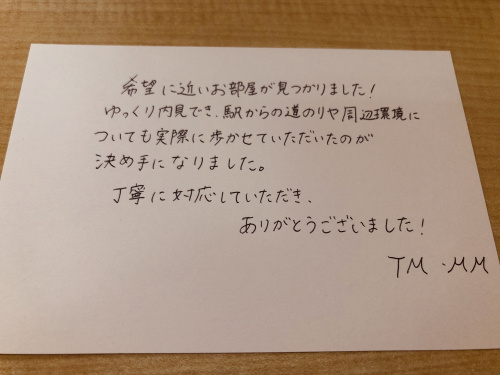 希望に近いお部屋が見つかりました!
ゆっくり内見でき、駅からの道のりや周辺環境に
ついても実際に歩かせていただいたのが
決め手になりました。
丁寧に対応していただき、
ありがとうございました!
TM・MM